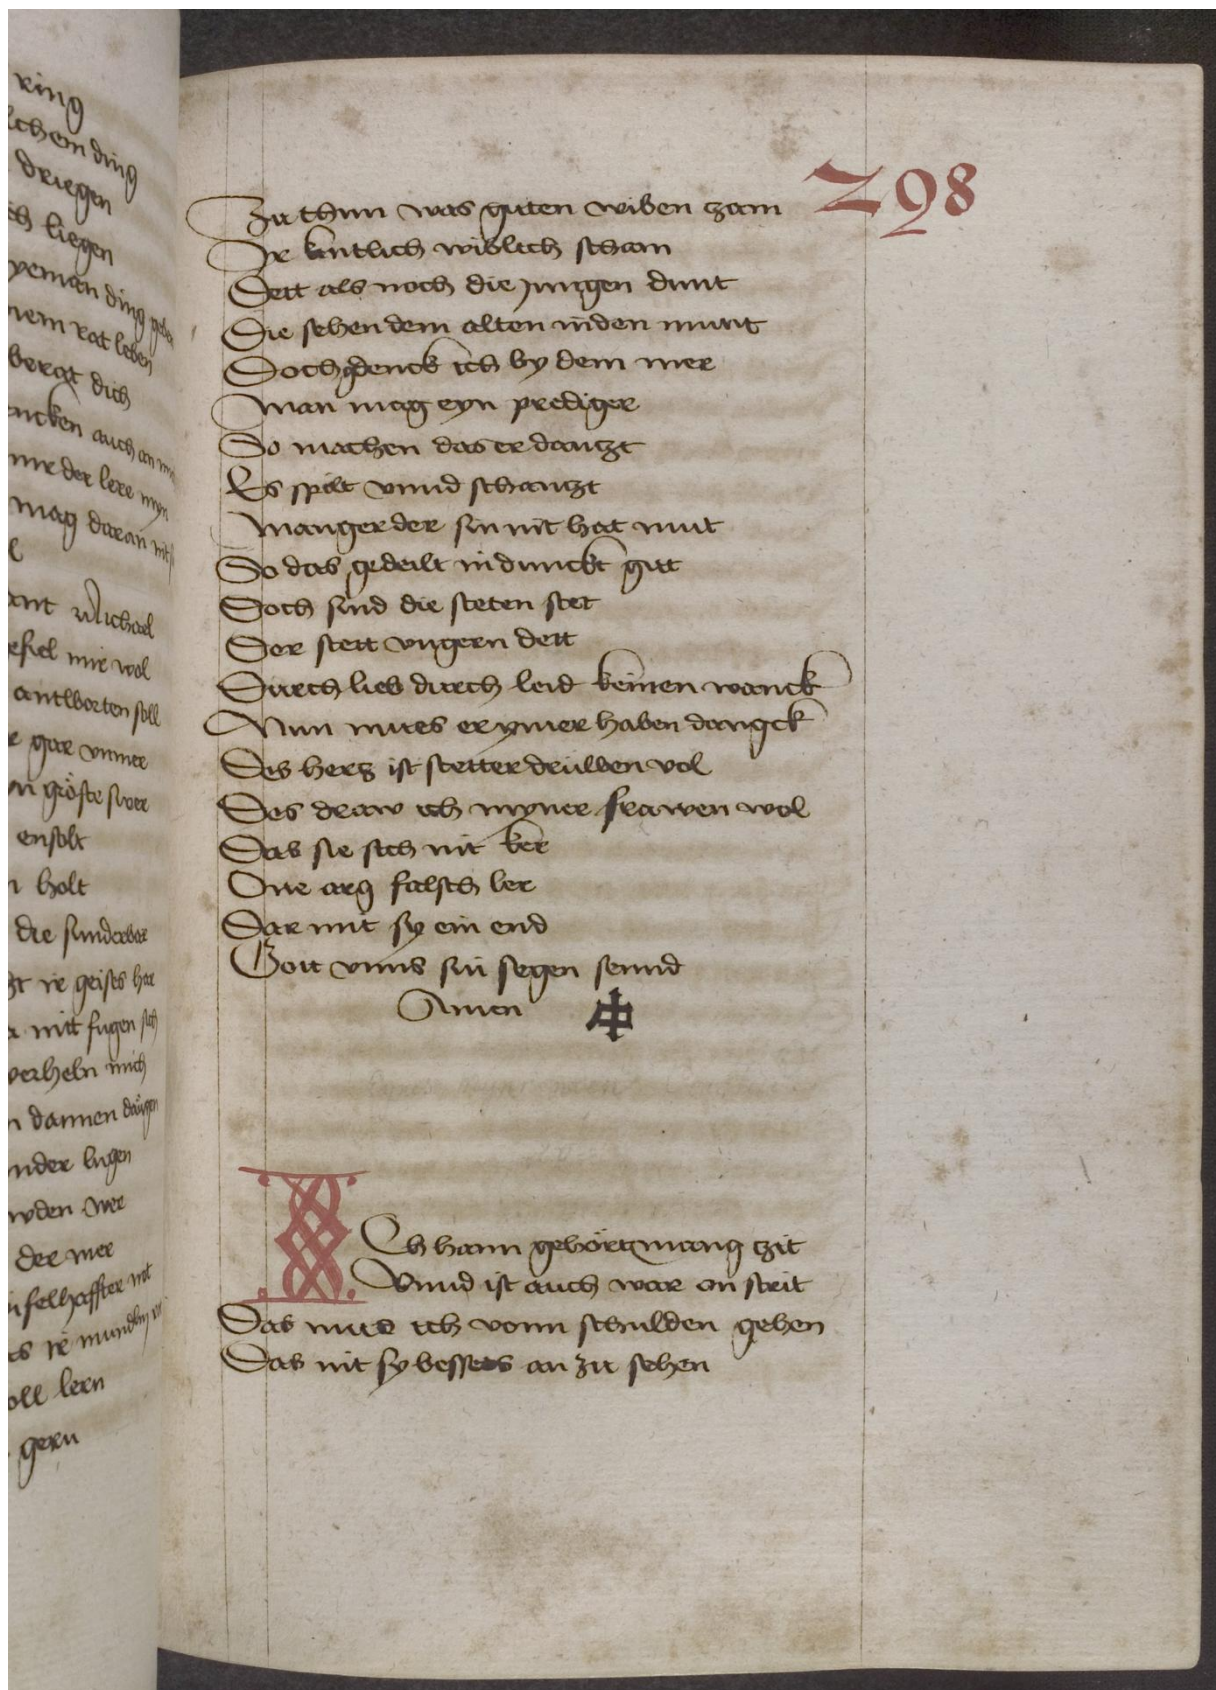 ring
ich em ding
driegen
ch liegen
yeman ding geben
nem rat leben
bergt dich
ncken auch an mi
mir der lere myn
mag daran nit
ant Michael
efiel mir wol
antworten soll
gar vnmer
gröste swer
ensolt
n holt
die sunderbar
st ir geistes her
nitt fugen sich
verheln mich
n dannen
nder lugen
wden wer
der mer
felhaffter
ir mundlin
oll lern
gern
298
Zu thun was guten wiben zam
Ir kintlich wiblich scham
Dett als noch die jungen dunt
Die sehen dem alten in den munt
Doch gdenck ich by dem mer
Man mag eyn prediger
So machen das er dantzt
Es spilt vnnd schantzt
Manger der sin nit hat mut
So das gedeilt in dunckt gut
Doch sind die steten stet
Der stett vngern dett
Durch lieb durch leid keinen wanck
Nun mues er ymer haben danngck
Des herz ist stetter druwen vol
Des draw ich myner frawen wol
Das sie sich nit ker
One arg falsch ler
Dar mit sy ein end
Gott vnns sin segen sennd
Amen
Ich hann gehört mang zit
Vnnd ist auch war on strit
Das mus ich vonn schulden gehen
Das nit sy bessers an zu sehen